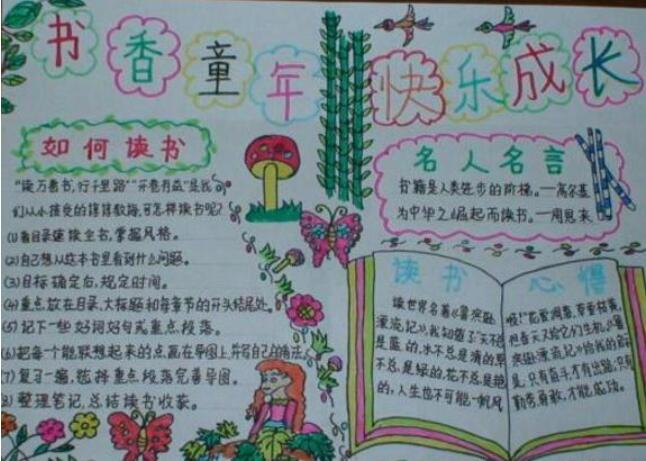 书香童年 快乐成长
如何读书
"读万卷书,行千里路""开卷有益"是我
们从小接受的谆谆教诲,可怎样读书呢?
(1)看目录速读全书,掌握风格。
(2)自己想从这本书里看到什么问题。
(3)目标确定后,规定时间。
(4)重点放在目录、大标题和每章节的开头结尾处。
(5)记下一些好词好句或重点段落。
(6)把每个能联想起来的点画在导图上,并写自己的看法。
(7)复习一遍,选择重点段落完善导图。
整理笔记,总结读书收获。
名人名言
书籍是人类进步的阶梯。—高尔基
为中华之崛起而读书。—周恩来
读书心得
读世界名著《鲁宾逊
漂流记》,我知道了"天不总
是蓝的,水不总是清的,草
不总是绿的,花不总是艳
的,人生也不可能一帆风
顺!"花需凋落,草要枯黄,
但春天又给它们生机。《鲁
宾逊漂流记》给我的
是,只有奋斗,才有出路,只有
勤劳勇敢,才能成功。